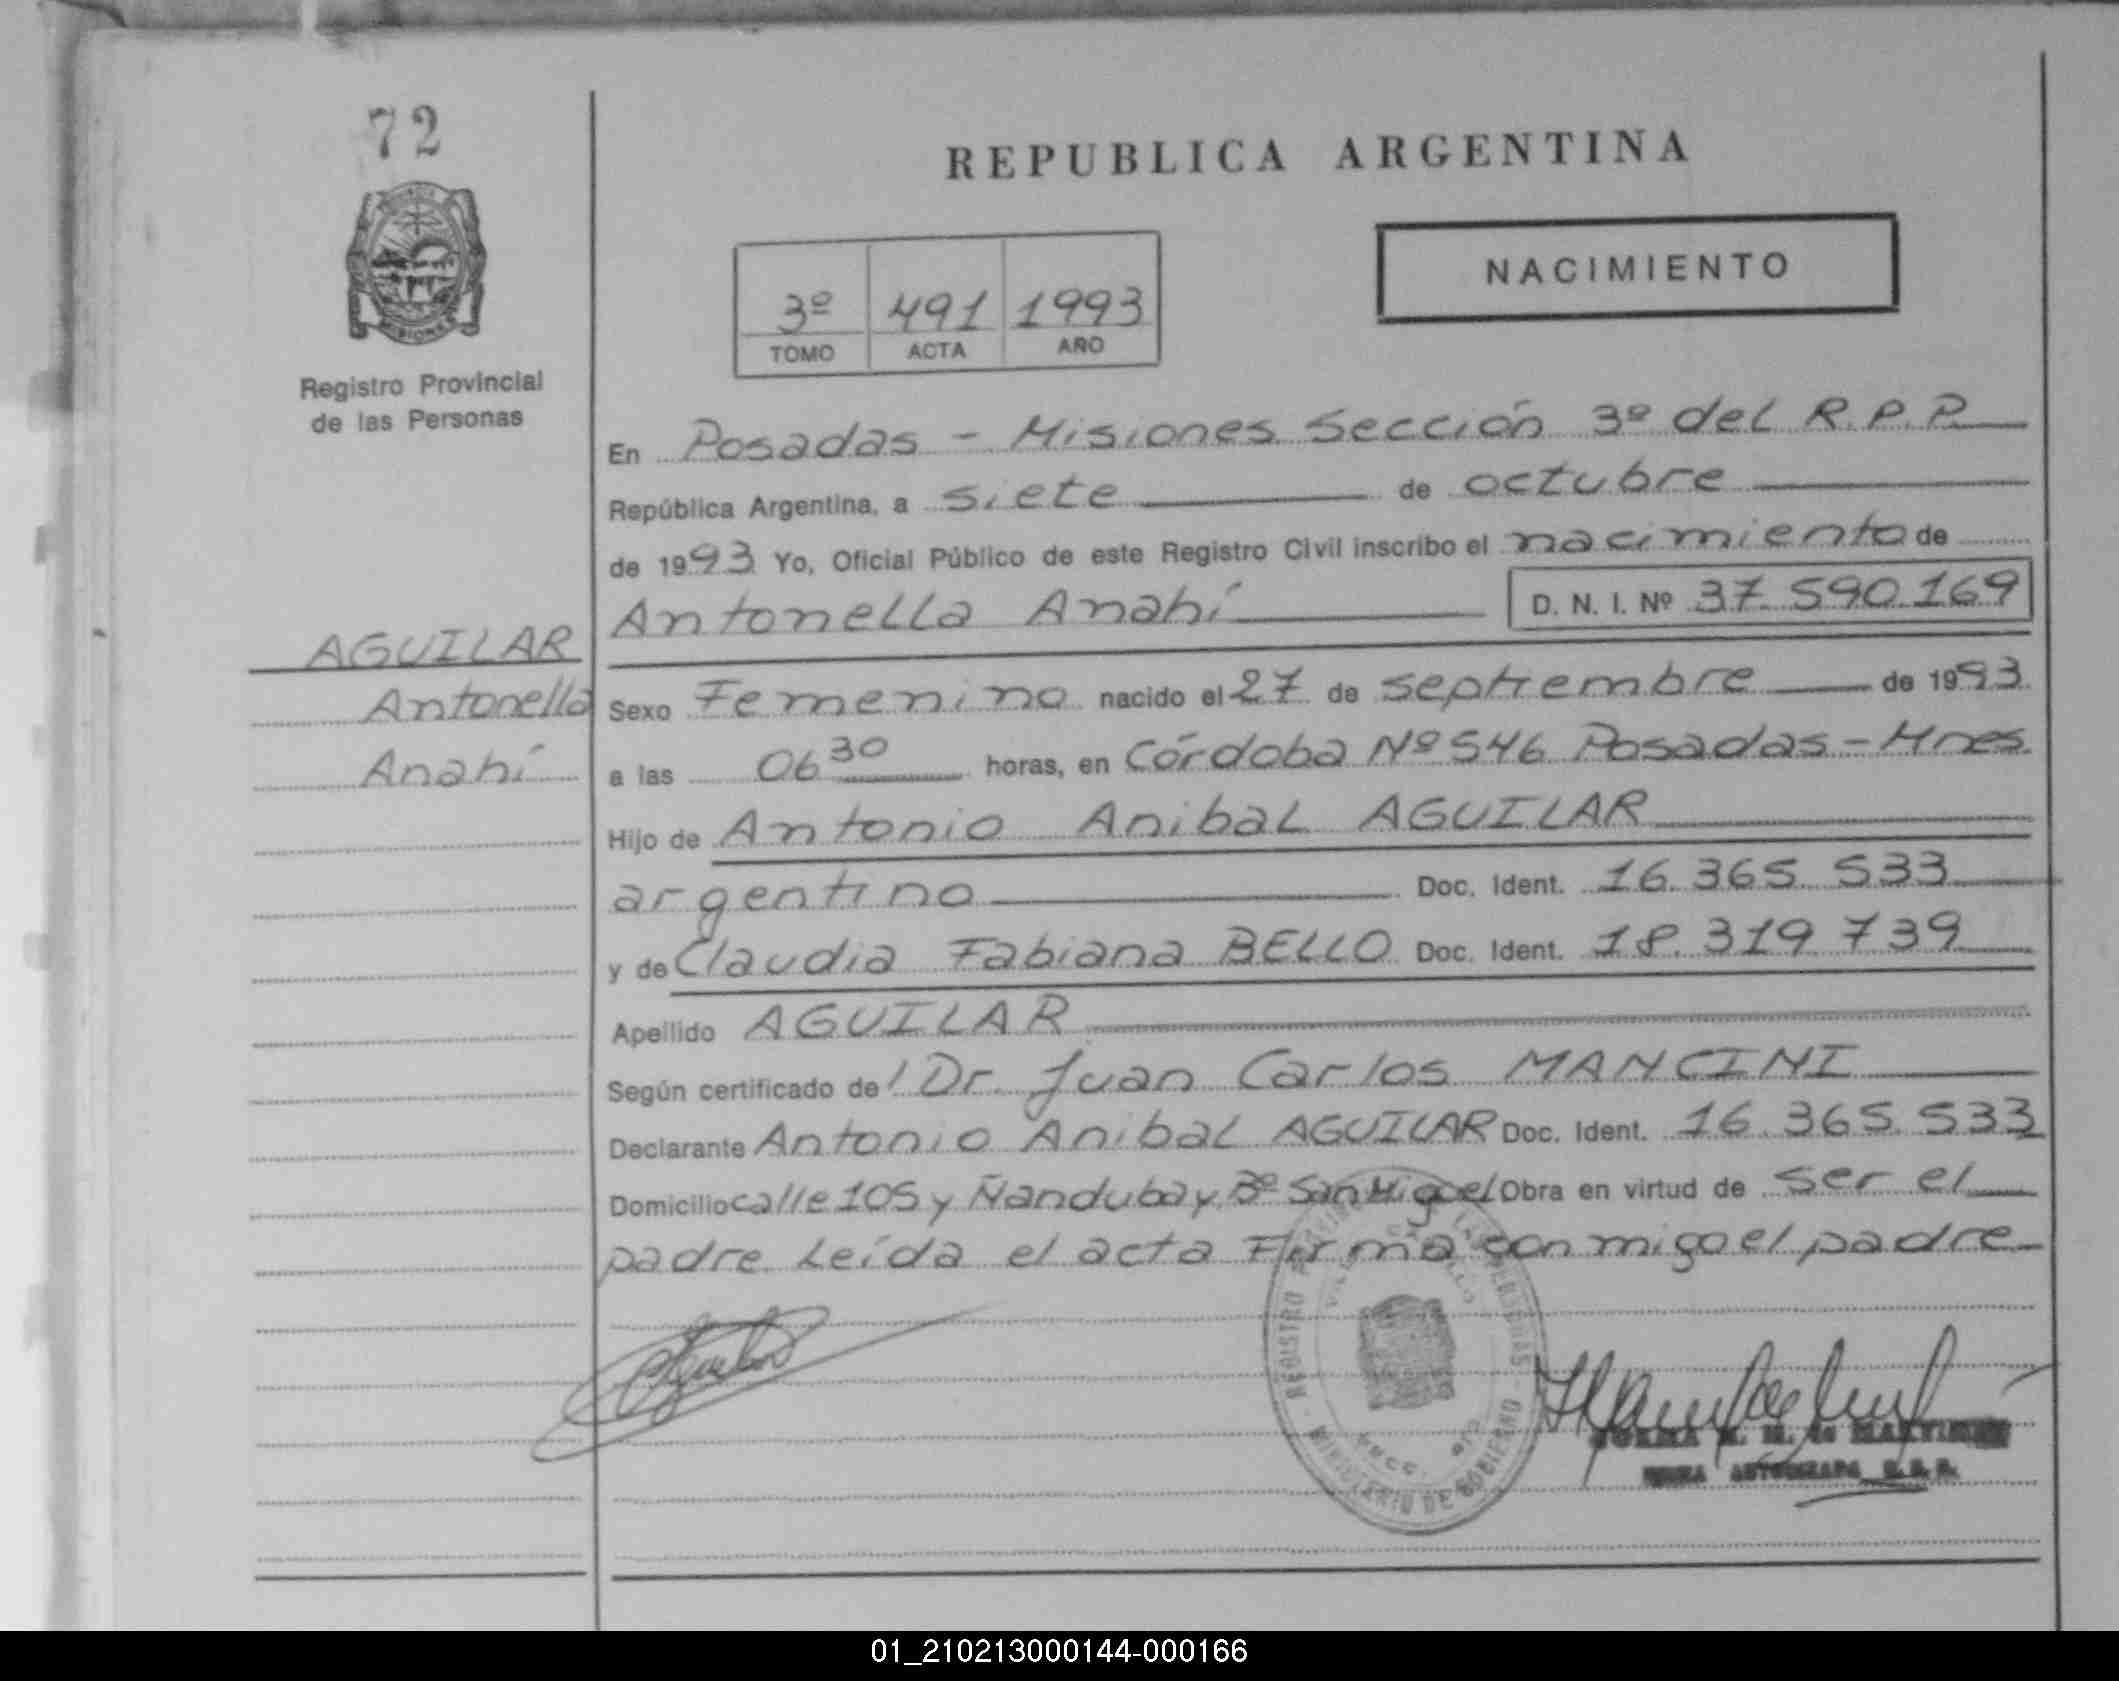 72
REPUBLICA ARGENTINA
NACIMIENTO
3º 491 1993
TOMO ACTA AÑO
MISIONES
Registro Provincial
de las Personas
En Posadas - Misiones Sección 3º del R.P.P.
República Argentina, a siete de octubre
de 1993 Yo, Oficial Público de este Registro Civil inscribo el nacimiento de
Antonella Anahí D. N. I. Nº 37.590.169
AGUILAR
Antonella
Anahí
Sexo Femenino nacido el 27 de septiembre de 1993
a las 06 30 horas, en Córdoba Nº 546 Posadas - Mnes.
Hijo de Antonio Anibal AGUILAR
argentino Doc. Ident. 16.365.533
y de Claudia Fabiana BELLO Doc. Ident. 18.319.739
Apellido AGUILAR
Según certificado de Dr. Juan Carlos MANCINI
Declarante Antonio Anibal AGUILAR Doc. Ident. 16.365.533
Domicilio calle 105 y Ñandubay Bº San Miguel Obra en virtud de ser el
padre Leída el acta Firma conmigo el padre
REGISTRO LAS PERSONAS
MINISTERIO DE GOBIERNO
01_210213000144-000166